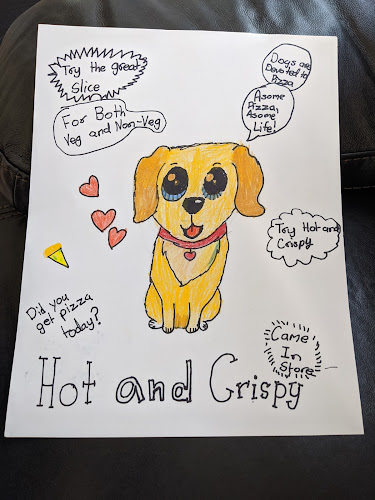 Try the great
Slice
For Both
Veg and Non-Veg
Dogs are
Devoted to
Pizza
Asome
Pizza,
Asome
Life!
Try Hot and
Crispy
Did you
get pizza
today?
Came
In
Store
Hot and Crispy